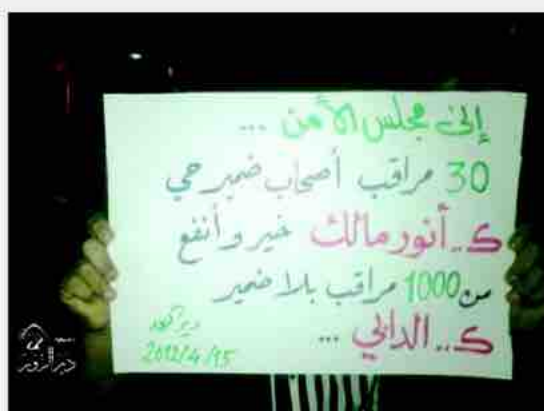 إلى مجلس الأمن ...
30 مراقب أصحاب ضمير حي
كـ.. أنور مالك خير وأنفع
من 1000 مراقب بلا ضمير
كـ.. الدابي ...
دير الزور
2012/4/15
دير الزور